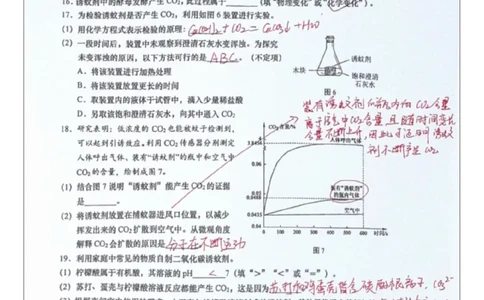 16. 诱蚊剂中的酵母发酵产生 CO₂,此过程属于______(填“物理变化”或“化学变化”)。
17. 为检验诱蚊剂是否产生 CO₂,利用如图 6 装置进行实验。
(1) 用化学方程式表示检验的原理:Ca(OH)₂+CO₂=CaCO₃↓+H₂O
(2) 一段时间后,装置中未观察到澄清石灰水变浑浊。为探究
未变浑浊的原因,以下方法可行的是 ABC。(不定项)
A. 将该装置进行加热处理
B. 将该装置放置更长的时间
C. 取装置内的液体于试管中,滴入少量稀盐酸
D. 另取饱和澄清石灰水,向其中通入 CO₂
诱蚊剂
木块
饱和澄清
石灰水
图 6
18. 研究表明:低浓度的 CO₂ 也能被蚊子检测到,
可以起到引诱效应。利用 CO₂ 传感器分别测定
人体呼出气体、装有“诱蚊剂”的瓶中和空气中
CO₂ 的含量,绘制成图 7。
(1) 结合图 7 说明“诱蚊剂”能产生 CO₂ 的证据
是______。
(2) 将诱蚊剂放置在捕蚊器进风口位置,以减少
挥发出来的 CO₂ 扩散到空气中。从微观角度
解释 CO₂ 会扩散的原因是 分子在不断运动
装有诱蚊剂的瓶内的 CO₂ 含量
高于空气中 CO₂ 含量,且随时间变长
含量不断上升,因此可证明诱蚊
剂不断产生 CO₂
CO₂ 含量/%
人体呼出气体
装有“诱蚊剂”
的瓶内气体
空气中
0 100 200 300 400 500 600 时间/s
图 7
19. 利用家庭中常见的物质自制二氧化碳诱蚊剂。
(1) 柠檬酸属于有机酸,其溶液的 pH < 7(填“>”“<”或“=”)。
(2) 苏打、蛋壳与柠檬酸溶液反应都能产生 CO₂,这是因为